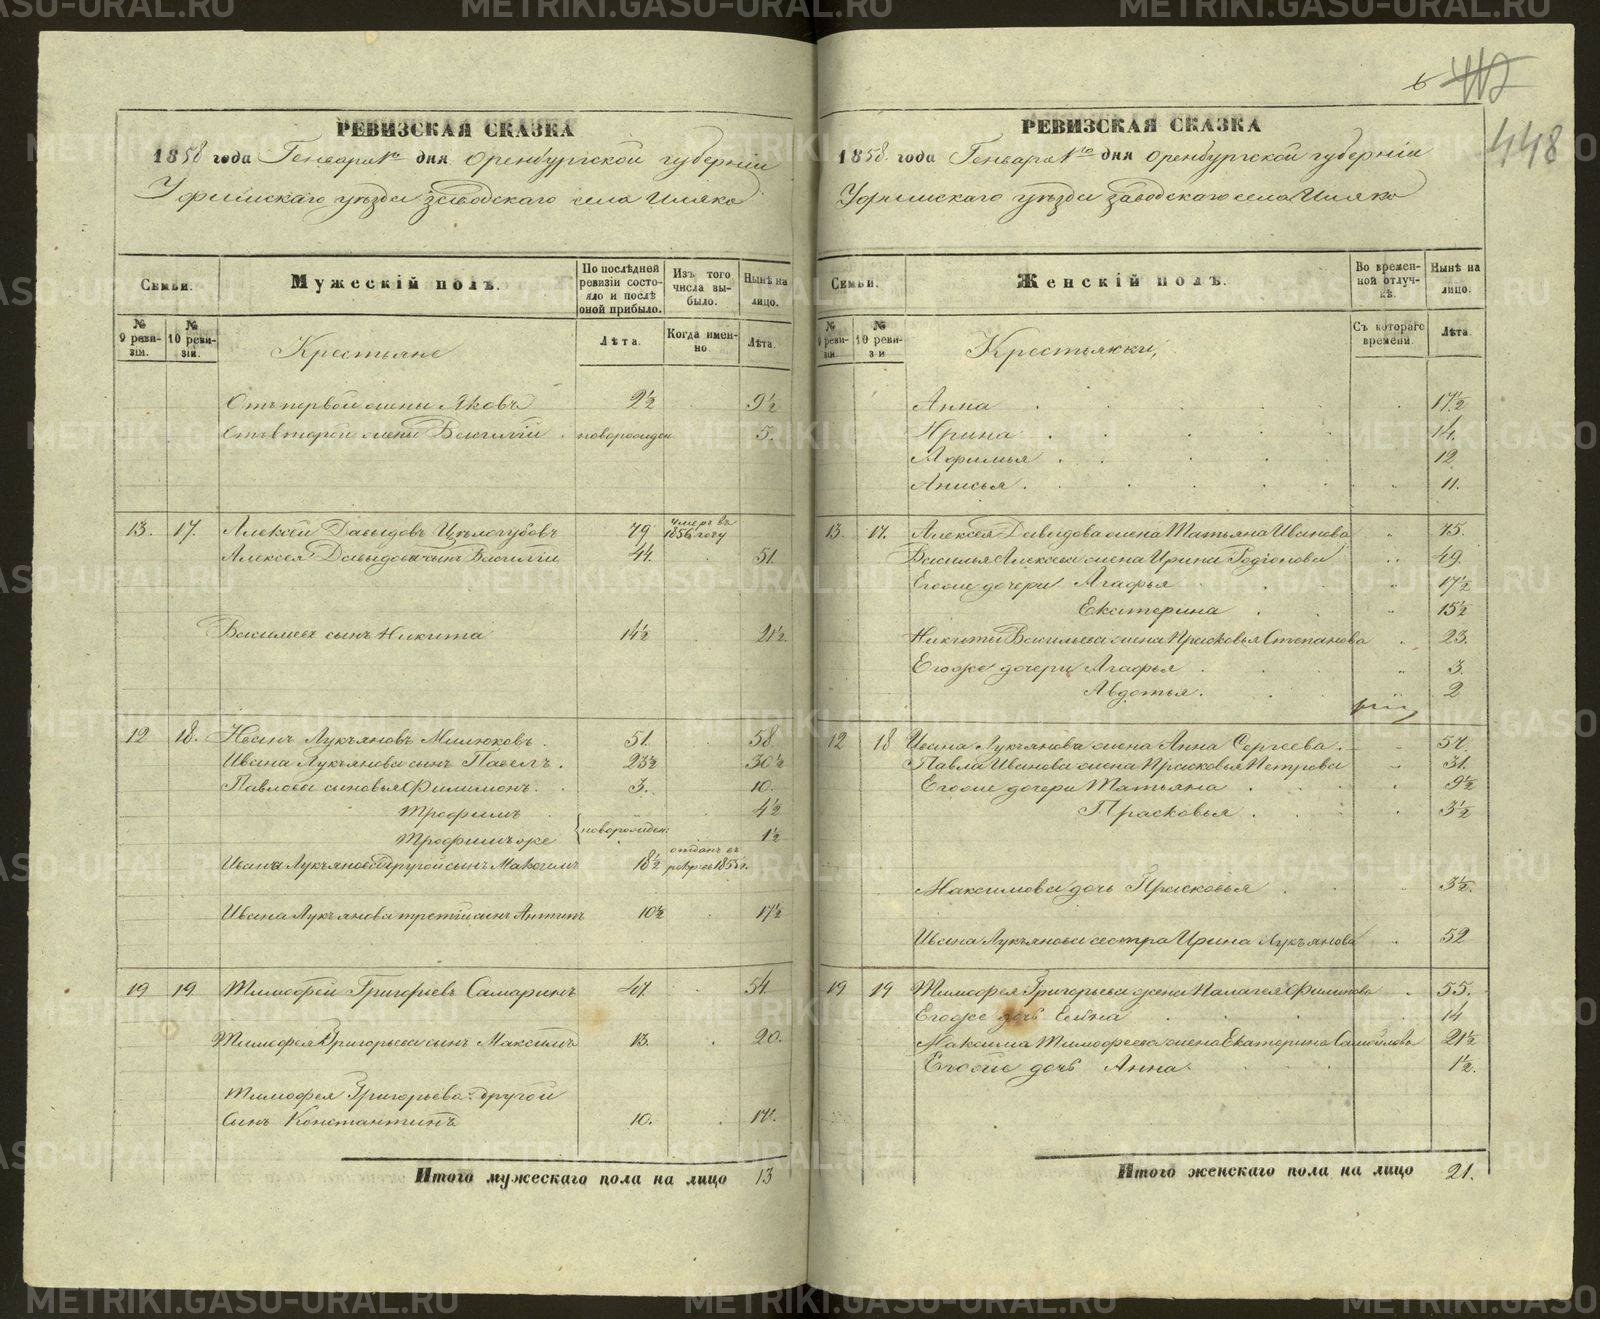 РЕВИЗСКАЯ СКАЗКА
1858 года Генваря дня Оренбургской губернии
Уфимскаго уѣзда заводскаго села Иляко
Семьи.
Мужескій полъ.
По послѣдней ревизіи состояло и послѣ оной прибыло.
Изъ того числа выбыло.
Нынѣ на лицо.
№ 9 ревизіи.
№ 10 ревизіи.
Крестьяне
Лѣта.
Когда именно.
Лѣта.
Отъ первой жены Яковъ 2½ 9½
Отъ второй жены Василій новорожден 5.
13. 17. Алексѣй Давыдовъ 79 умеръ въ 1856 году
Алексея Давыдова сынъ Василій 44. 51.
Васильевъ сынъ Никита 14½ 21½.
12 18. Иванъ Лукьяновъ Милюковъ. 51. 58.
Ивана Лукьянова сынъ Павелъ. 23½ 30½
Павловы сыновья Филимонъ. 3. 10.
Трофимъ 4½
Трофимъ же новорожден: 1½
Ивана Лукьянова другой сынъ Максимъ 18½ отданъ въ рекр въ 1855 г.
Ивана Лукьянова третій сынъ Антипъ 10½ 17½
19 19 Тимофей Григорьевъ Самаринъ 47. 54.
Тимофея Григорьева сынъ Максимъ 13. 20.
Тимофея Григорьева другой
Сынъ Константинъ 10. 17.
Итого мужескаго пола на лицо 13
448
РЕВИЗСКАЯ СКАЗКА
1858 года Генваря дня Оренбургской губерніи
Уфимскаго уѣзда заводскаго села Иляко
Семьи.
Женскій полъ.
Во временной отлучкѣ.
Нынѣ на лицо.
№ 9 ревизіи.
№ 10 ревизіи
Крестьянки,
Съ котораго времени.
Лѣта.
Анна 17½
Ирина 14.
Афимья 12
Анисья. 11.
13. 17. Алексея Давыдова жена Татьяна Иванова 75.
Василья Алексеева жена Ирина Родіонова 49.
Егоже дочери Агафья 17½
Екатерина 15½
Никиты Васильева жена Прасковья Степанова 23.
Егоже дочери Агафья 3.
Авдотья. 2
12 18 Ивана Лукьянова жена Анна Сергеева. 57.
Павла Иванова жена Прасковья Петрова 31.
Егоже дочери Татьяна 9½
Прасковья 3½
Максимова дочь Прасковья 3½.
Ивана Лукьянова сестра Ирина Лукьянова 52
19 19 Тимофея Григорьева жена Палагея Филипова 55.
Егоже дочь Елена 14
Максима Тимофеева жена Екатерина Самойлова 21½
Егоже дочь Анна. 1½.
Итого женскаго пола на лицо 21.
METRIKI.GASO-URAL.RU